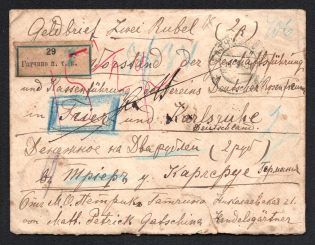 Geldbrief Zwei Rubel (2 R)
29
Гатчино п. т. к.
Vorstand der Geschäftsführung
und Kassenführung Vereins Deutscher Rosenfreunde
in Trier und Karlsruhe
Deutschland.
Денежное на Два рубля (2 руб)
въ Трiеръ у Карлсруе Германiя
Отъ М. О. Петрикъ Гатчина Николаевская 21.
von Matt. Petrick Gatschina Handelsgärtner